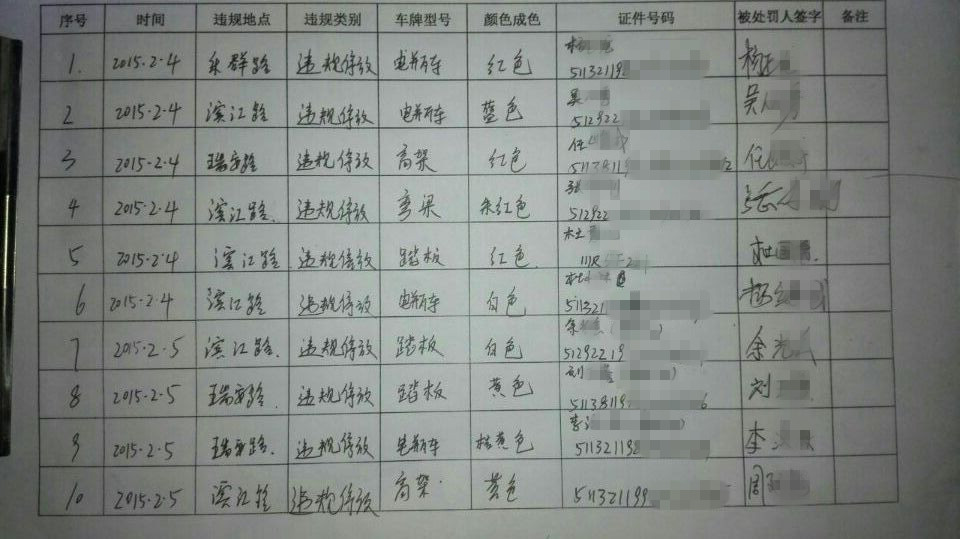 序号 时间 违规地点 违规类别 车牌型号 颜色成色 证件号码 被处罚人签字 备注
1. 2015.2.4 乐群路 违规停放 电瓶车 红色 杨 51132119 杨
2 2015.2.4 滨江路 违规停放 电瓶车 蓝色 吴 512922 吴
3 2015.2.4 瑞安路 违规停放 高架 红色 任 51138119 任
4 2015.2.4 滨江路. 违规停放 弯梁 朱红色 张 512922 张
5 2015.2.4 滨江路. 违规停放 踏板 红色. 杜 川R 杜
6 2015.2.4 滨江路. 违规停放 电瓶车 白色 511321 杨
7 2015.2.5 滨江路. 违规停放 踏板 白色 余 51292219 余
8 2015.2.5 瑞安路. 违规停放 踏板 黄色 刘 51138119 6 刘
9 2015.2.5 瑞安路. 违规停放 电瓶车 桔黄色 李 511321192 李
10 2015.2.5 滨江路 违规停放 高架. 黄色 511321199 周